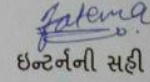 Fatema
ઇન્ટર્નની સહી